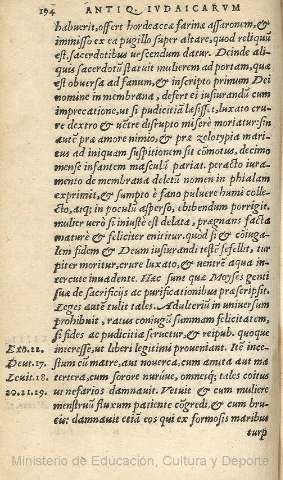 194 ANTIQ. IVDAICARVM
habuerit, offert hordeaceæ farinæ assaronem, &
immisso ex ea pugillo super altare, quod reliquũ
est, sacerdotibus uescendum datur. Deinde ali-
quis sacerdotũ statuit mulierem ad portam, quæ
est obuersa ad fanum, & inscripto primum Dei
nomine in membrana, defert ei iusiurandũ cum
imprecatione, ut si pudicitiã læsisset, luxato cru-
re dextro & uẽtre disrupto misere moriatur: sin
autẽ præ amore nimio, & præ zelotypia mari-
tus ad iniquam suspitionem sit cõmotus, decimo
mense infantem masculũ pariat. peracto iura-
mento de membrana deletũ nomen in phialam
exprimit, & sumpto è fano puluere humi colle-
cto, atq; in poculũ asperso, ebibendum porrigit.
mulier uerò si iniustè est delata, prægnans facta
maturè & feliciter enititur. quod si & cõiuga-
lem fidem & Deum iusiurandi testẽ fefellit, tur
piter moritur, crure luxato, & uentrẽ aqua in-
tercute inuadente. Hæc sunt quæ Moyses genti
suæ de sacrificijs ac purificationibus præscripsit.
Leges autẽ tulit tales. Adulteriũ in uniuersum
prohibuit, ratus coniugũ summam felicitatem,
si fides ac pudicitia seruetur, & reipub. quoque
Exo. 22. interesse, ut liberi legitimi proueniant. Itẽ ince-
Deut. 27. stum cũ matre, aut nouerca, cum amita aut ma
Leuit. 18. tertera, cum sorore nurúue, omnesq; tales coitus
20. 21. 29. ut nefarios damnauit. Vetuit & cum muliere
menstruũ fluxum patiente cõgredi, & cum bru-
eu: damnauit etiã eos qui ex formosis maribus
turp
Ministerio de Educación, Cultura y Deporte